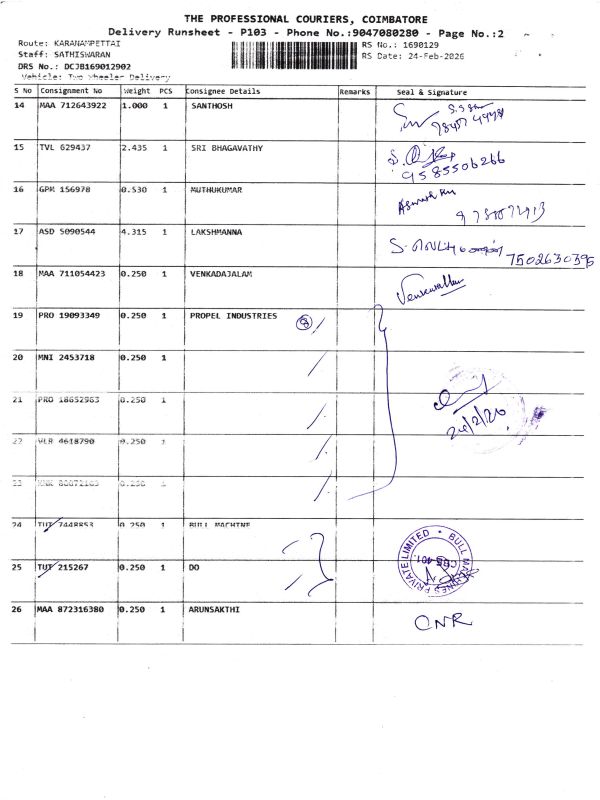 THE PROFESSIONAL COURIERS, COIMBATORE
Delivery Runsheet - P103 - Phone No.:9047080280 - Page No.:2
Route: KARANAMPETTAI
RS No.: 1690129
Staff: SATHISWARAN
RS Date: 24-Feb-2026
DRS No.: DCJB169012902
Vehicle: Two Wheeler Delivery
S No Consignment No Weight PCS Consignee Details Remarks Seal & Signature
14 MAA 712643922 1.000 1 SANTHOSH
15 TVL 629437 2.435 1 SRI BHAGAVATHY
9585506266
16 GPM 156978 0.530 1 MUTHUKUMAR
17 ASD 5090544 4.315 1 LAKSHMANNA
7502630395
18 MAA 711054423 0.250 1 VENKADAJALAM
19 PRO 19093349 0.250 1 PROPEL INDUSTRIES
20 MNI 2453718 0.250 1
21 PRO 18652963 0.250 1
24/2/26
22 VLR 4618790 0.250 1
23 0.250 1
24 TUT 7448853 0.250 1 BULL MACHINE
25 TUT 215267 0.250 1 DO
BULL MACHINES PRIVATE LIMITED
CBE-401
26 MAA 872316380 0.250 1 ARUNSAKTHI
CNR